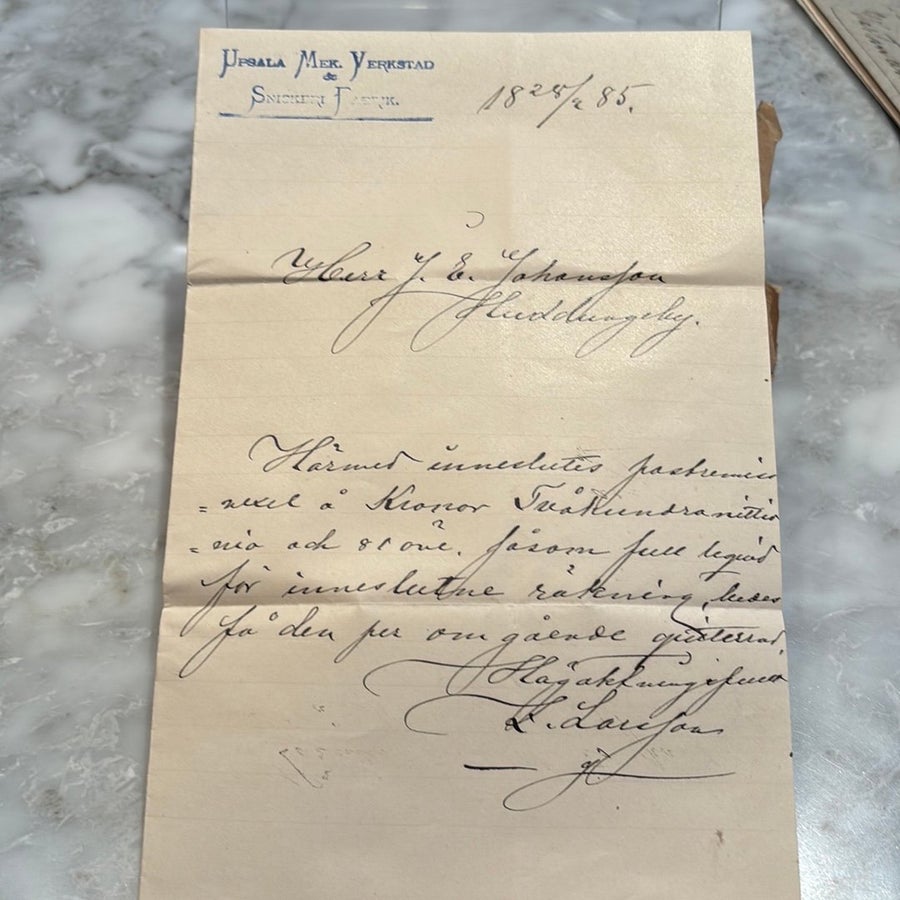 UPSALA MEK. VERKSTAD
&
SNICKERI FABRIK.
18 28/2 85.
Herr J. E. Johansson
Huddungeby.
Härmed inneslutes postremiss
=vexel å Kronor Tvåhundranittio
=nio och 81 öre. såsom full liqvid
för inneslutne räkning, bedes
få den per om gående quitterad,
Högaktningsfullt
L. Larsson